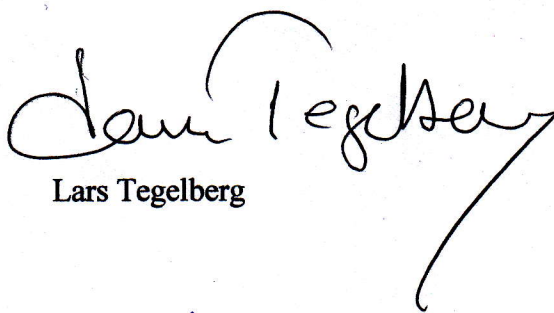 Lars Tegelberg
Lars Tegelberg